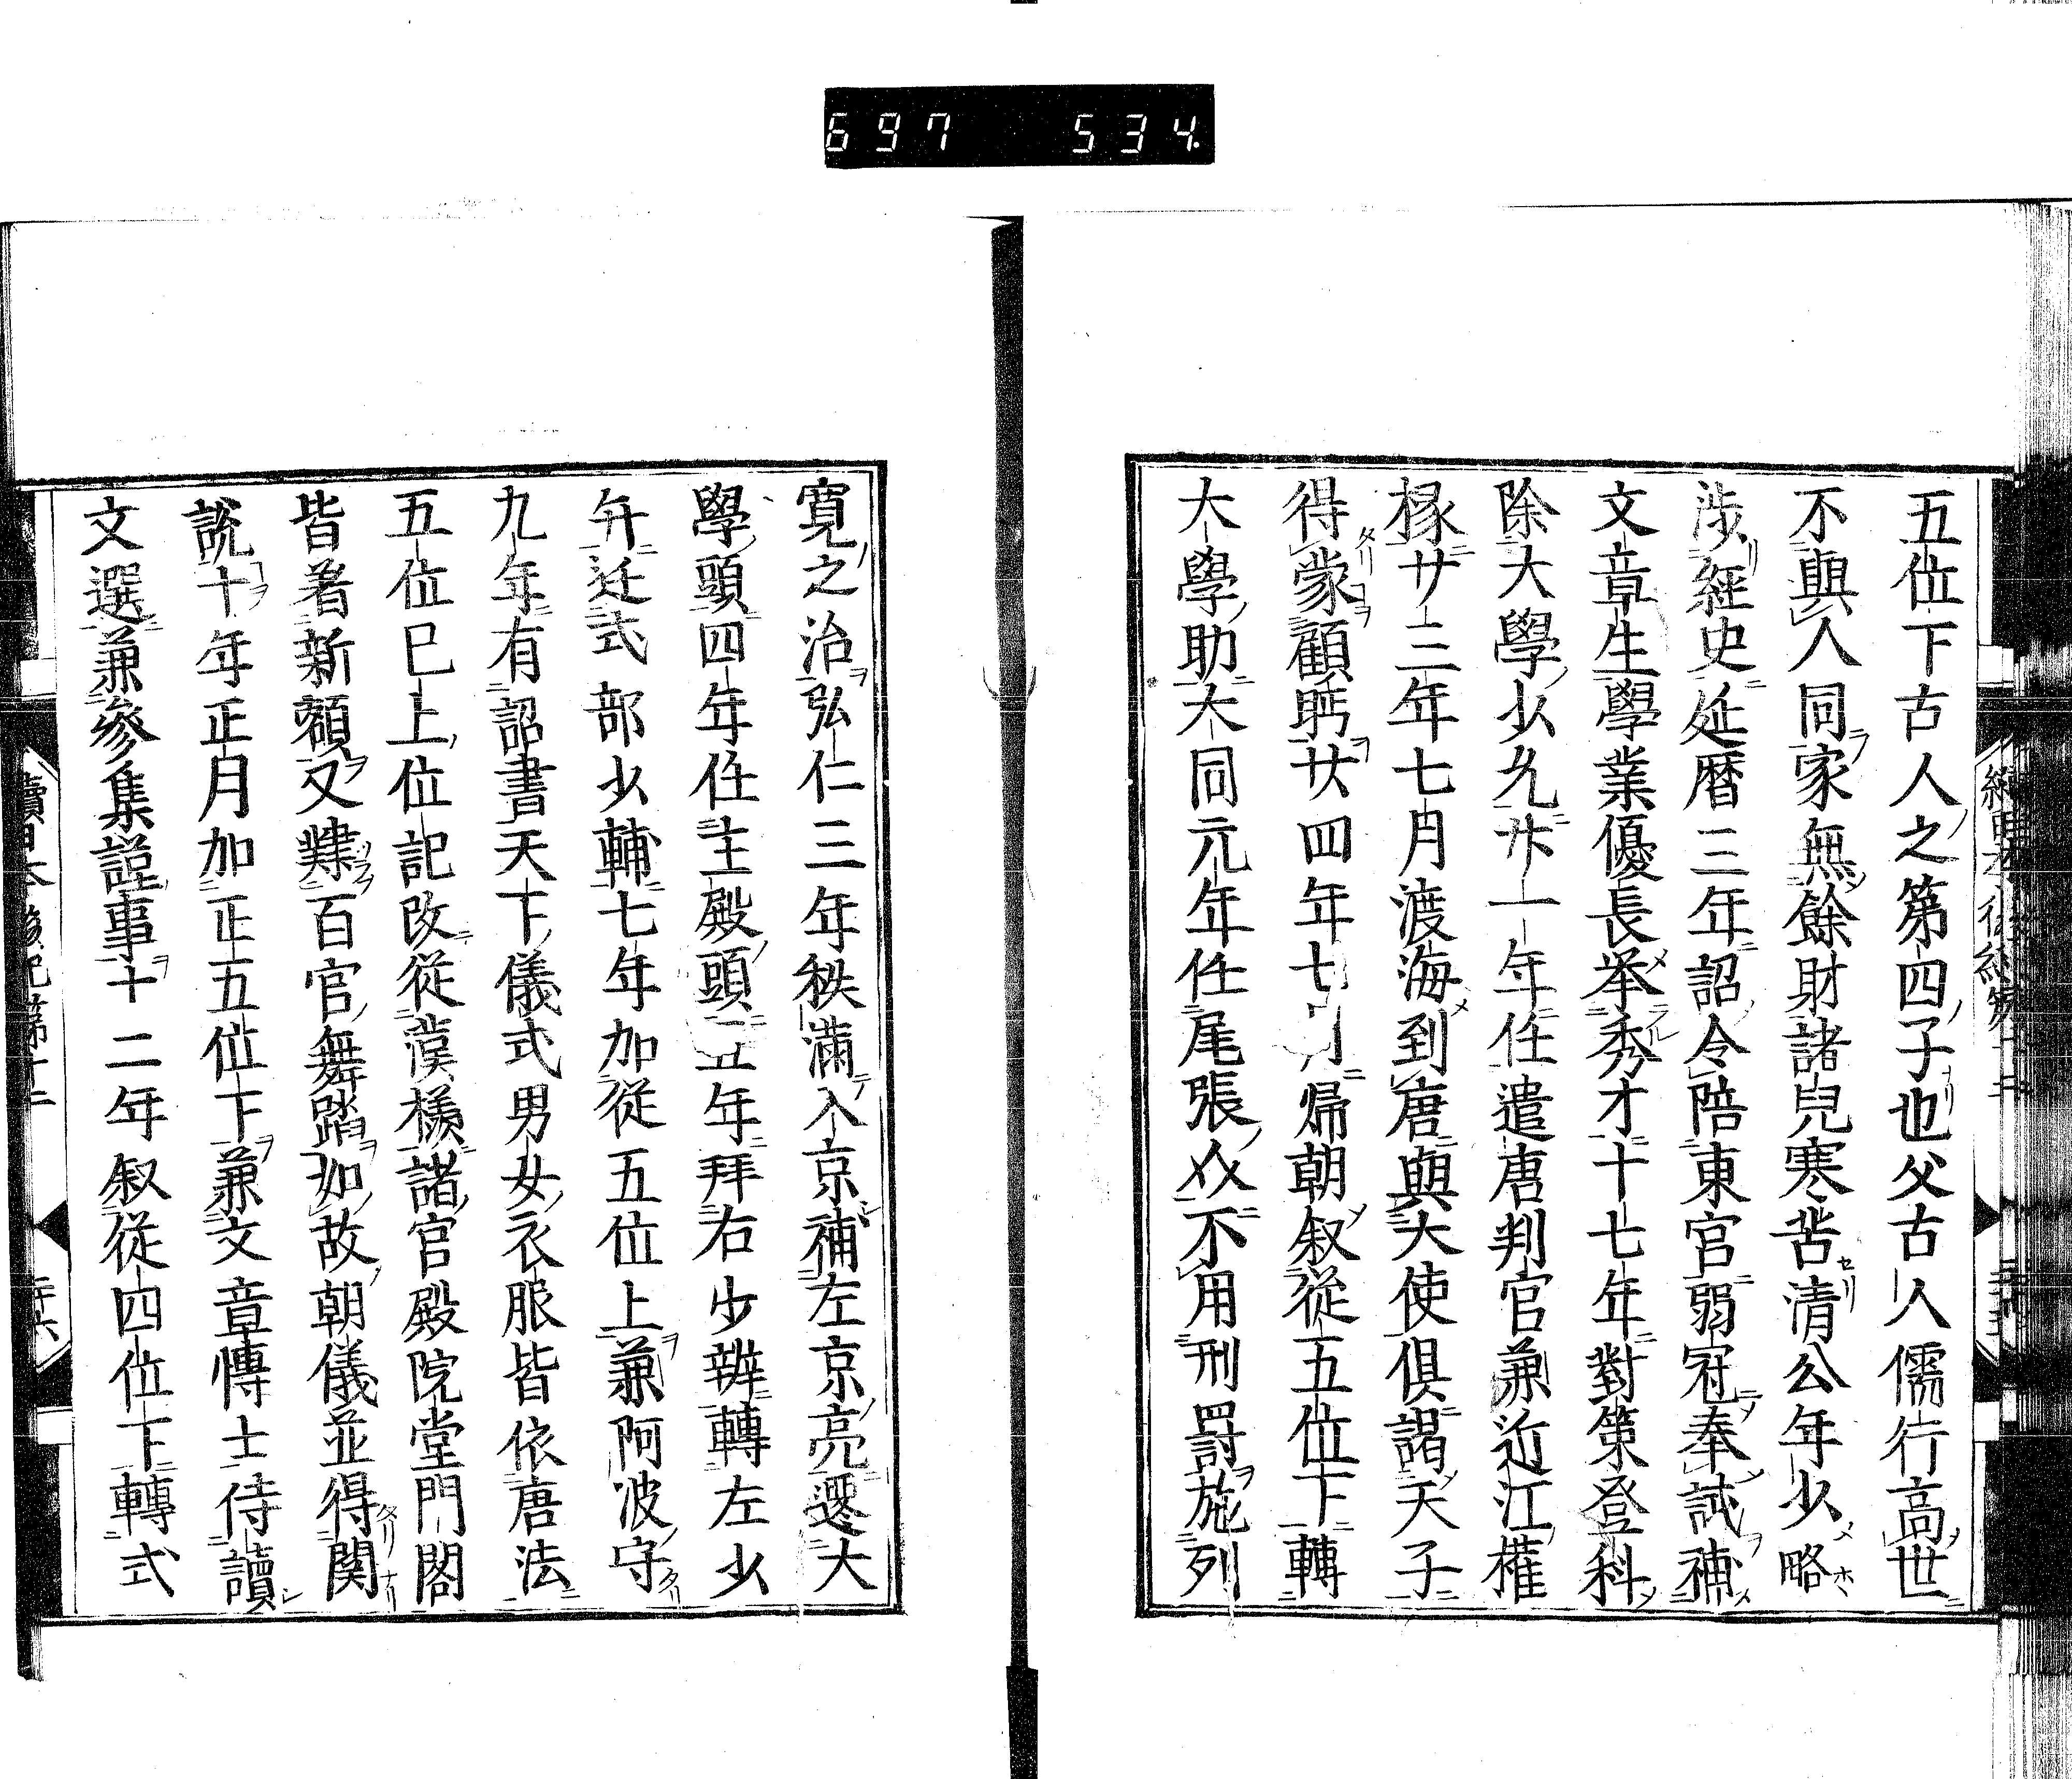 697 534.
五位下古人之第四子也父古人儒行高世
不與人同家無餘財諸兒寒苦清公年少略
涉經史延曆三年詔令陪東宮弱冠奉試補
文章生學業優長挙秀才十七年對策登科
除大學少允廾一年任遣唐判官兼近江權
掾廿二年七月渡海到唐與大使俱謁天子
得蒙顧眄廿四年七月帰朝叙從五位下轉
大學助大同元年任尾張介不用刑罸施列
寛之治弘仁三年秩滿入京補左京亮遷大
學頭四年任主殿頭五年拜右少辨轉左少
弁迁式部少輔七年加從五位上兼阿波守
九年有詔書天下儀式男女衣服皆依唐法
五位已上位記改從漢様諸官殿院堂門閣
皆着新額又肆百官舞蹈如故朝儀並得関
説十年正月加正五位下兼文章博士侍讀
文選兼參集議事十二年叙從四位下轉式
續日本後紀第十二